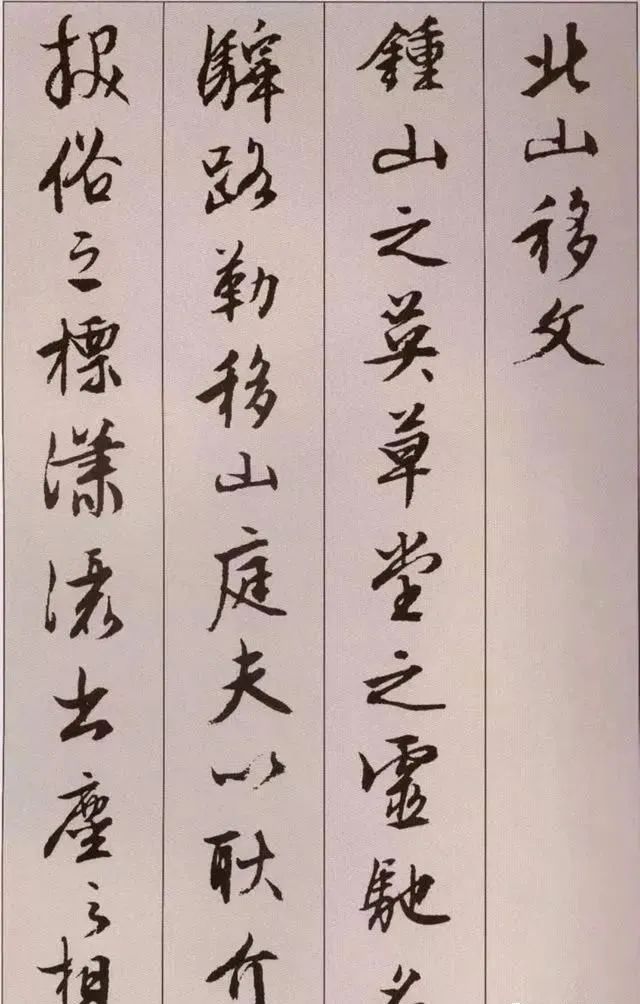 北山移文
鍾山之英草堂之靈馳
驛路勒移山庭夫以耿介
拔俗之標瀟灑出塵之想